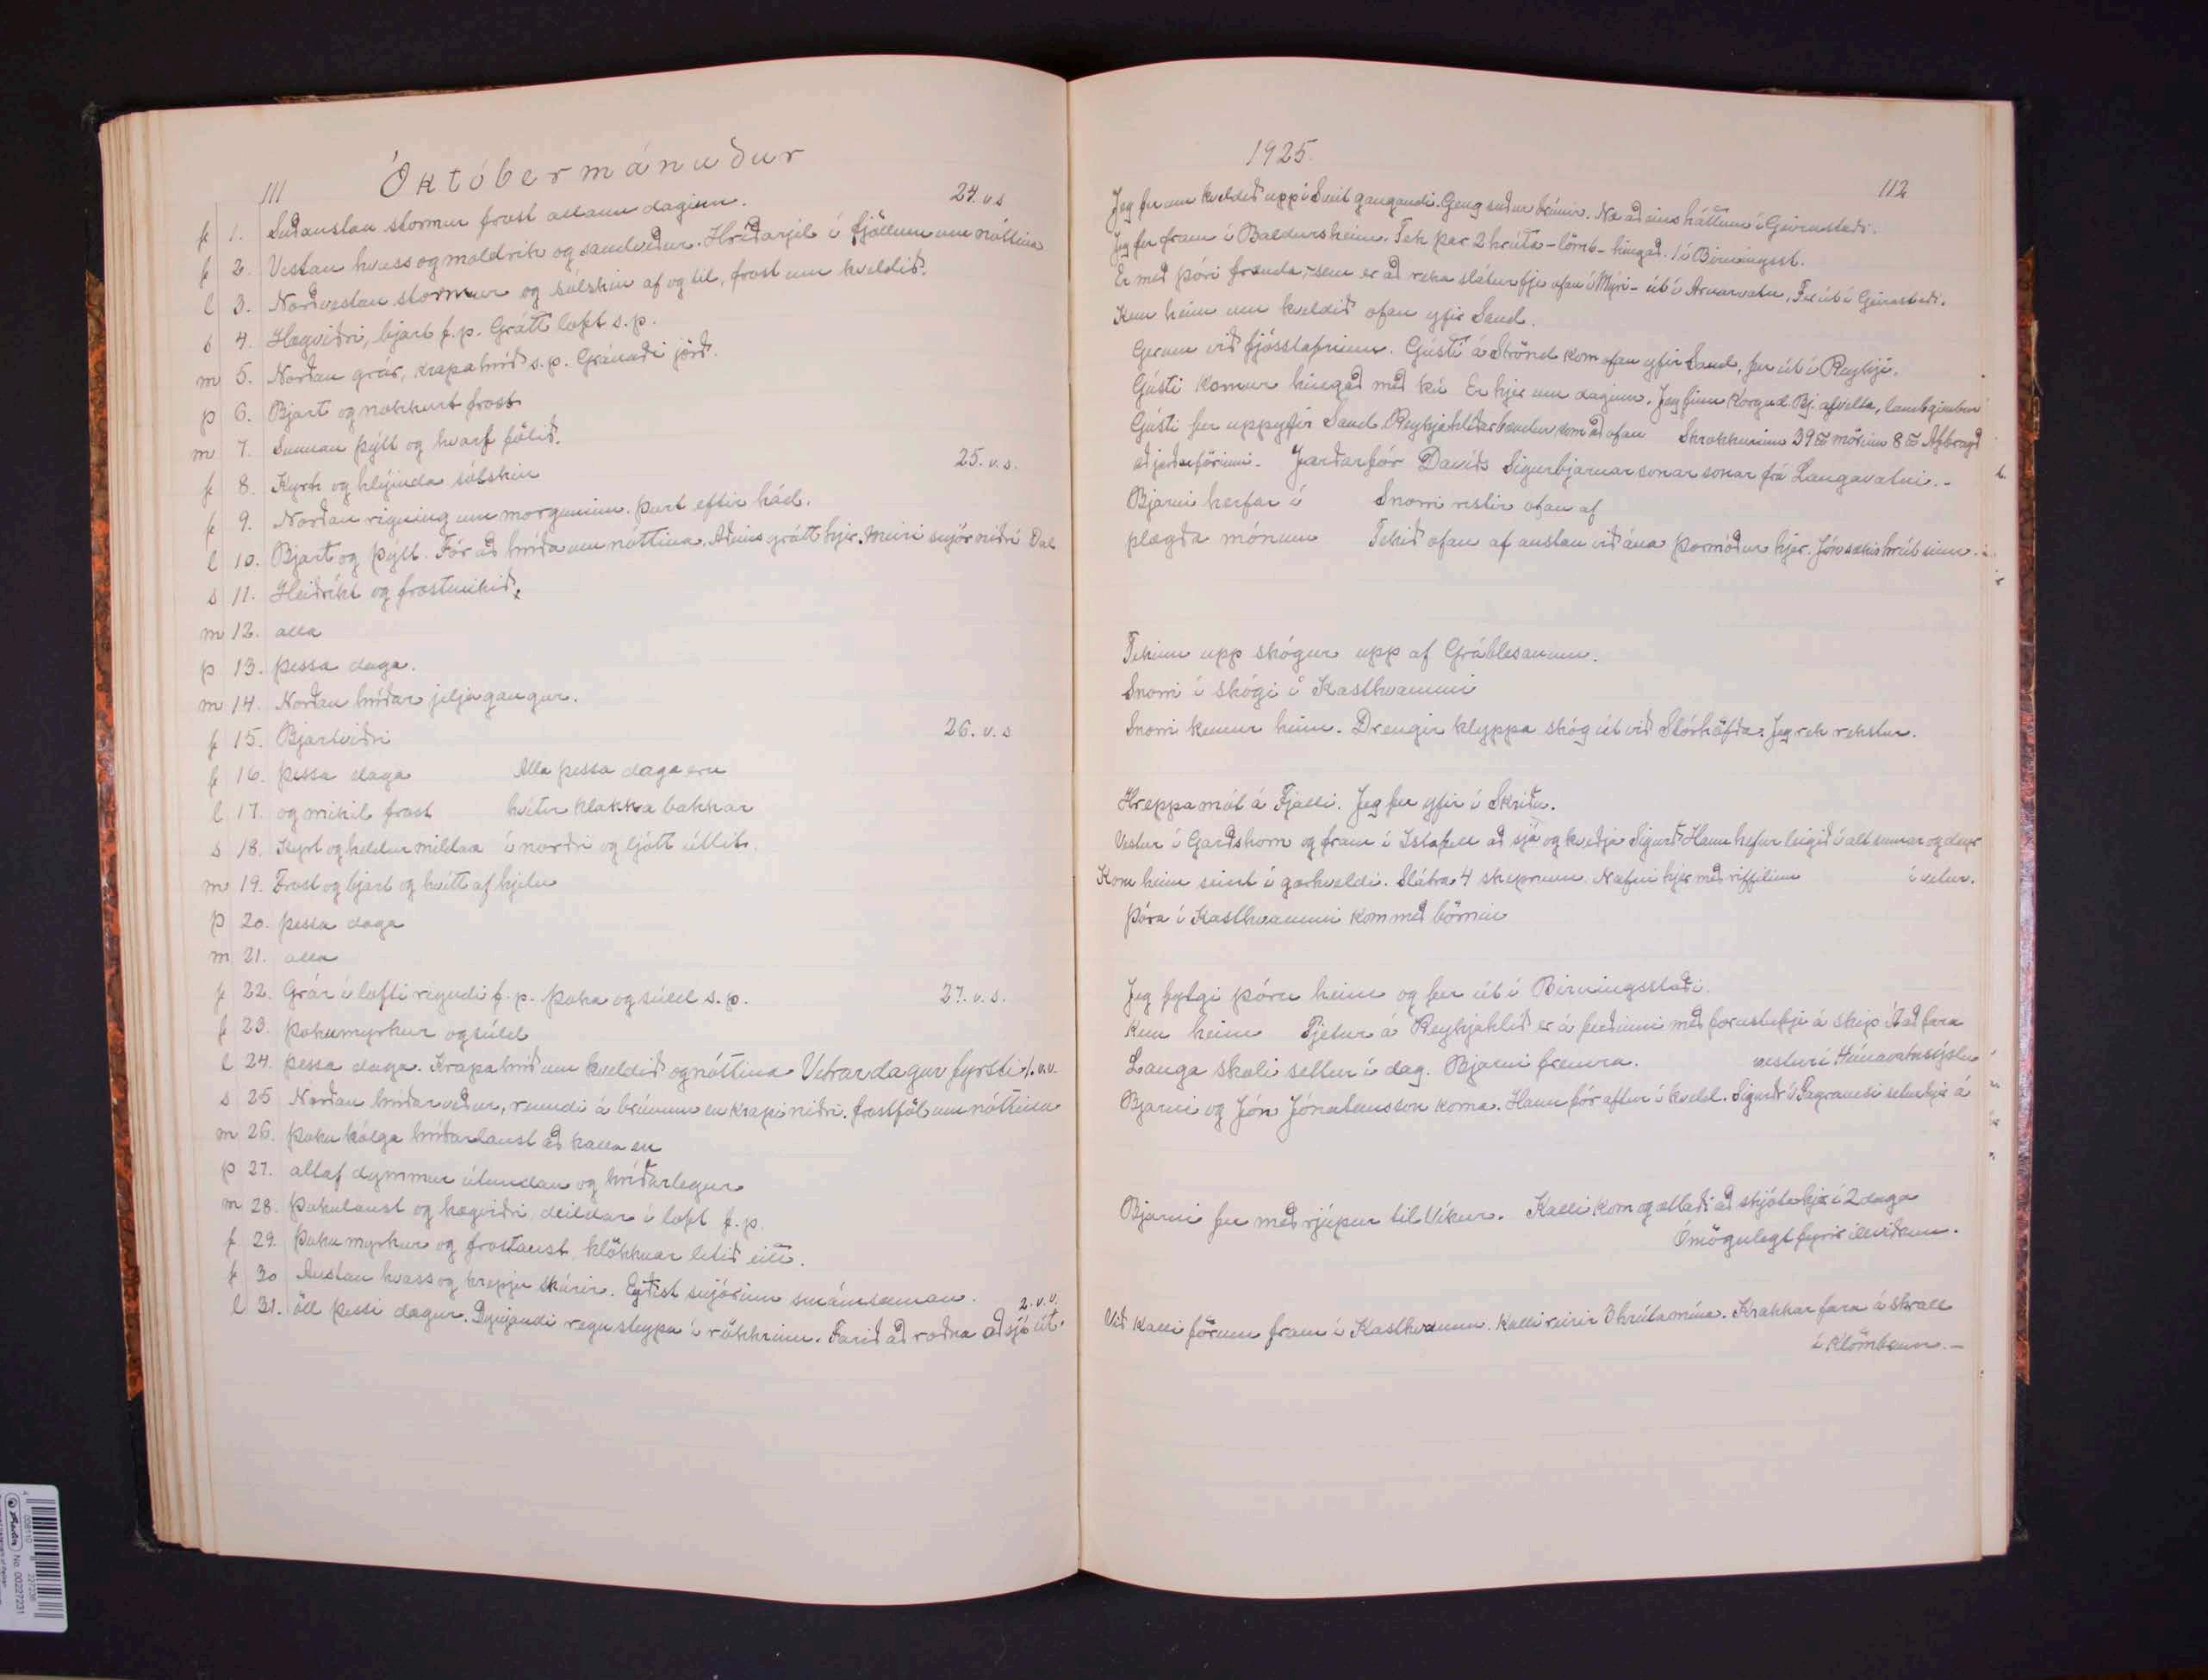 111 Októbermánuður
f 1. Suðaustan stormur frost allann daginn. 24. v.s
f 2. Vestan hvass og moldrik og sandveður. Hríðarjel í fjöllum um nóttina
l 3. Norðvestan stormur og sólskin af og til, frost um kveldið.
s 4. Hægviðri, bjart f.p. Grátt loft s.p.
m 5. Norðan grár, krapahríð s.p. Gránaði jörð.
þ 6. Bjart og nokkurt frost
m 7. Sunnan þýtt og hvarf fölið.
f 8. Kyrt og hlýinda sólskin 25. v.s.
f 9. Norðan rigning um morguninn. Þurt eftir hád.
l 10. Bjart og þýtt. Fór að hríða um nóttina. Aðeins grátt hjer. Meiri snjór niðrí Dal
s 11. Heiðríkt og frostmikið,
m 12. alla
þ 13. þessa daga.
m 14. Norðan hríðar jeljagangur.
f 15. Bjartviðri 26. v.s
f 16. þessa daga Alla þessa daga eru
l 17. og mikil frost hvítir klakka bakkar
s 18. Kyrt og heldur mildara í norðri og ljótt útlit.
m 19. Frost og bjart og hvítt af hjelu
þ 20. þessa daga
m 21. alla
f 22. Grár í lofti rigndi f.p. þoka og súld s.p. 27. v.s.
f 23. þokumyrkur og súld
l 24. þessa daga. Krapahríð um kveldið og nóttina Vetrardagur fyrsti 1. v.v.
s 25 Norðan hríðarveður, renndi á brúnum en krapi niðri. frostföl um nóttina
m 26. þoku kólga hríðarlaust að kalla en
þ 27. altaf dymmur útundan og hríðarlegur
m 28. Þokulaust og hægviðri, deildar í loft f.p.
f 29. Þoku myrkur og frostlaust, klökknar lítið eitt.
f 30 Austan hvass og hrepju skúrir. Eyðist snjórinn smámsaman.
l 31. öll þessi dægur. Dynjandi regnsteypa í rökkrinu. Farið að roðna að sjá út. 2. v.v.
1925.
112
Jeg fer um kveldið uppí Sveit gangandi. Geng suður brúnir. Næ aðeins háttum í Geirastaði.
Jeg fer fram í Baldursheim. Tek þar 2 hrúta-lömb- hingað. 1 í Birningsst.
Er með Þóri frænda,-sem er að reka sláturfje ofan í Mýri- út í Arnarvatn. Fer út í Geirastaði.
Kem heim um kveldið ofan yfir Sand.
Gerum við fjósstafninn. Gústi á Strönd kom ofan yfir Sand, fer út í Reykji.
Gústi kemur hingað með kú Er hjer um daginn. Jeg finn Korgud. Bj. afvelta, lambgimbur
Gústi fer uppyfir Sand. Reykjahlíðarbændur kom að ofan Skrokkurinn 39 ℔ mörinn 8 ℔ Afbragð
að jarðarförinni. Jarðarför Davíðs Sigurbjarnarsonar sonar frá Langavatni.-
Bjarni herfar í Snorri ristir ofan af
plægða mónum Tekið ofan af austan við ána Þormóður hjer. Jón sækir hrút sinn.
Tekinn upp skógur upp af Gráblesanum.
Snorri í skógi í Kasthvammi
Snorri kemur heim. Drengir klyppa skóg út við Stórhöfða. Jeg rek rekstur.
Hreppamót á Fjalli. Jeg fer yfir í Skriðu.
Vestur í Garðshorn og fram í Ystafell að sjá og kveðja Sigurð. Hann hefur leigið í alt sumar og deyr
Kom heim seint í gærkveldi. Slátra 4 skepnum. Nafni hjer með riffilinn í vetur.
Þóra í Kasthvammi kom með börnin
Jeg fylgi Þóru heim og fer út í Birningsstaði.
Kem heim Pjetur á Reykjahlíð er á ferðinni með forustufje á skip Á að fara
Langa skali settur í dag. Bjarni fremra. vestur í Húnavatnssýslu
Bjarni og Jón Jónatansson koma. Hann fór aftur í kveld. Sigurðr í Fagranesi setur hjer á
Bjarni fer með rjúpur til Víkur. Kalli kom og ætlaði að skjóta hjer í 2 daga
Ómögulegt fyrir illviðrum.
Við Kalli förum fram í Kasthvamm. Kalli reinir 3 hrúta mína. Krakkar fara á skrall
í Klömbrum.-